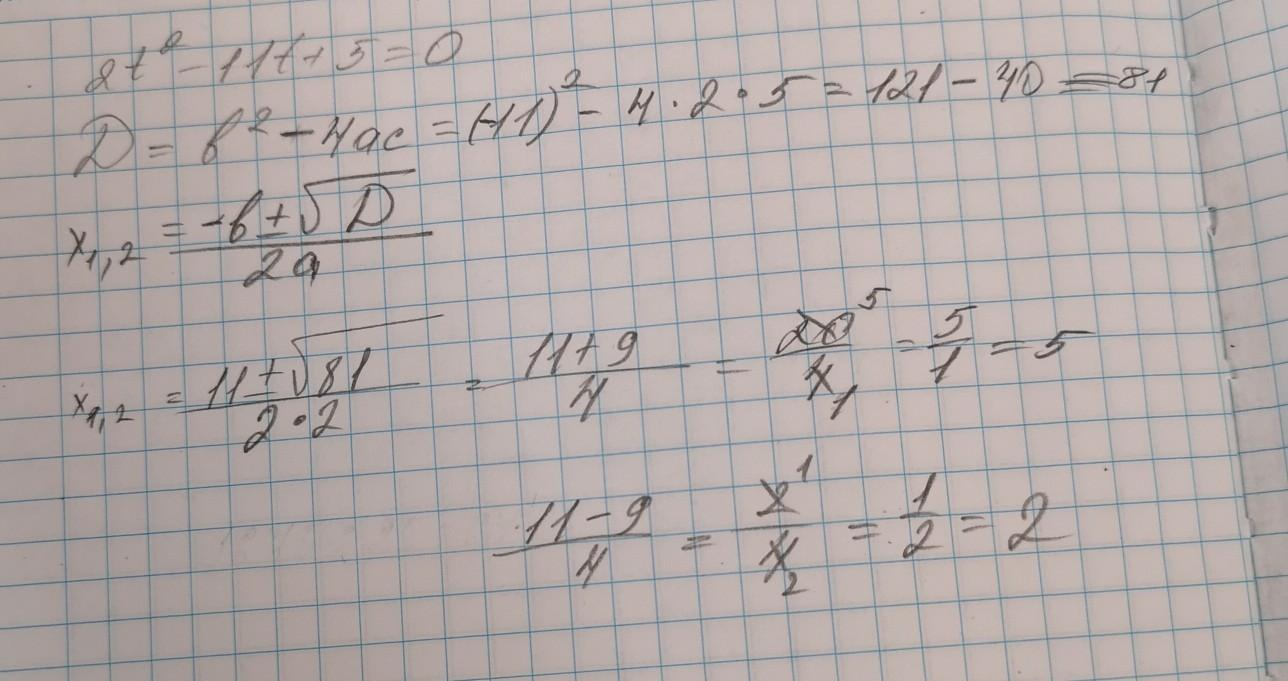 2t² - 11t + 5 = 0
D = b² - 4ac = (-11)² - 4 · 2 · 5 = 121 - 40 = 81
x₁,₂ = (-b ± √D) / 2a
x₁,₂ = (11 ± √81) / (2 · 2) = (11 + 9) / 4 = 20⁵ / 4₁ = 5/1 = 5
(11 - 9) / 4 = 2¹ / 4₂ = 1/2 = 2